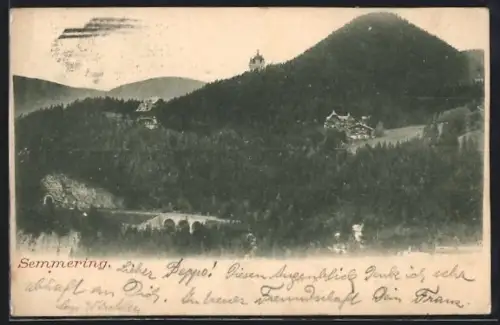 Semmering.
Lieber Peppo! Diesen Augenblick denke ich sehr
an Dich, In treuer Freundschaft Dein Franz.